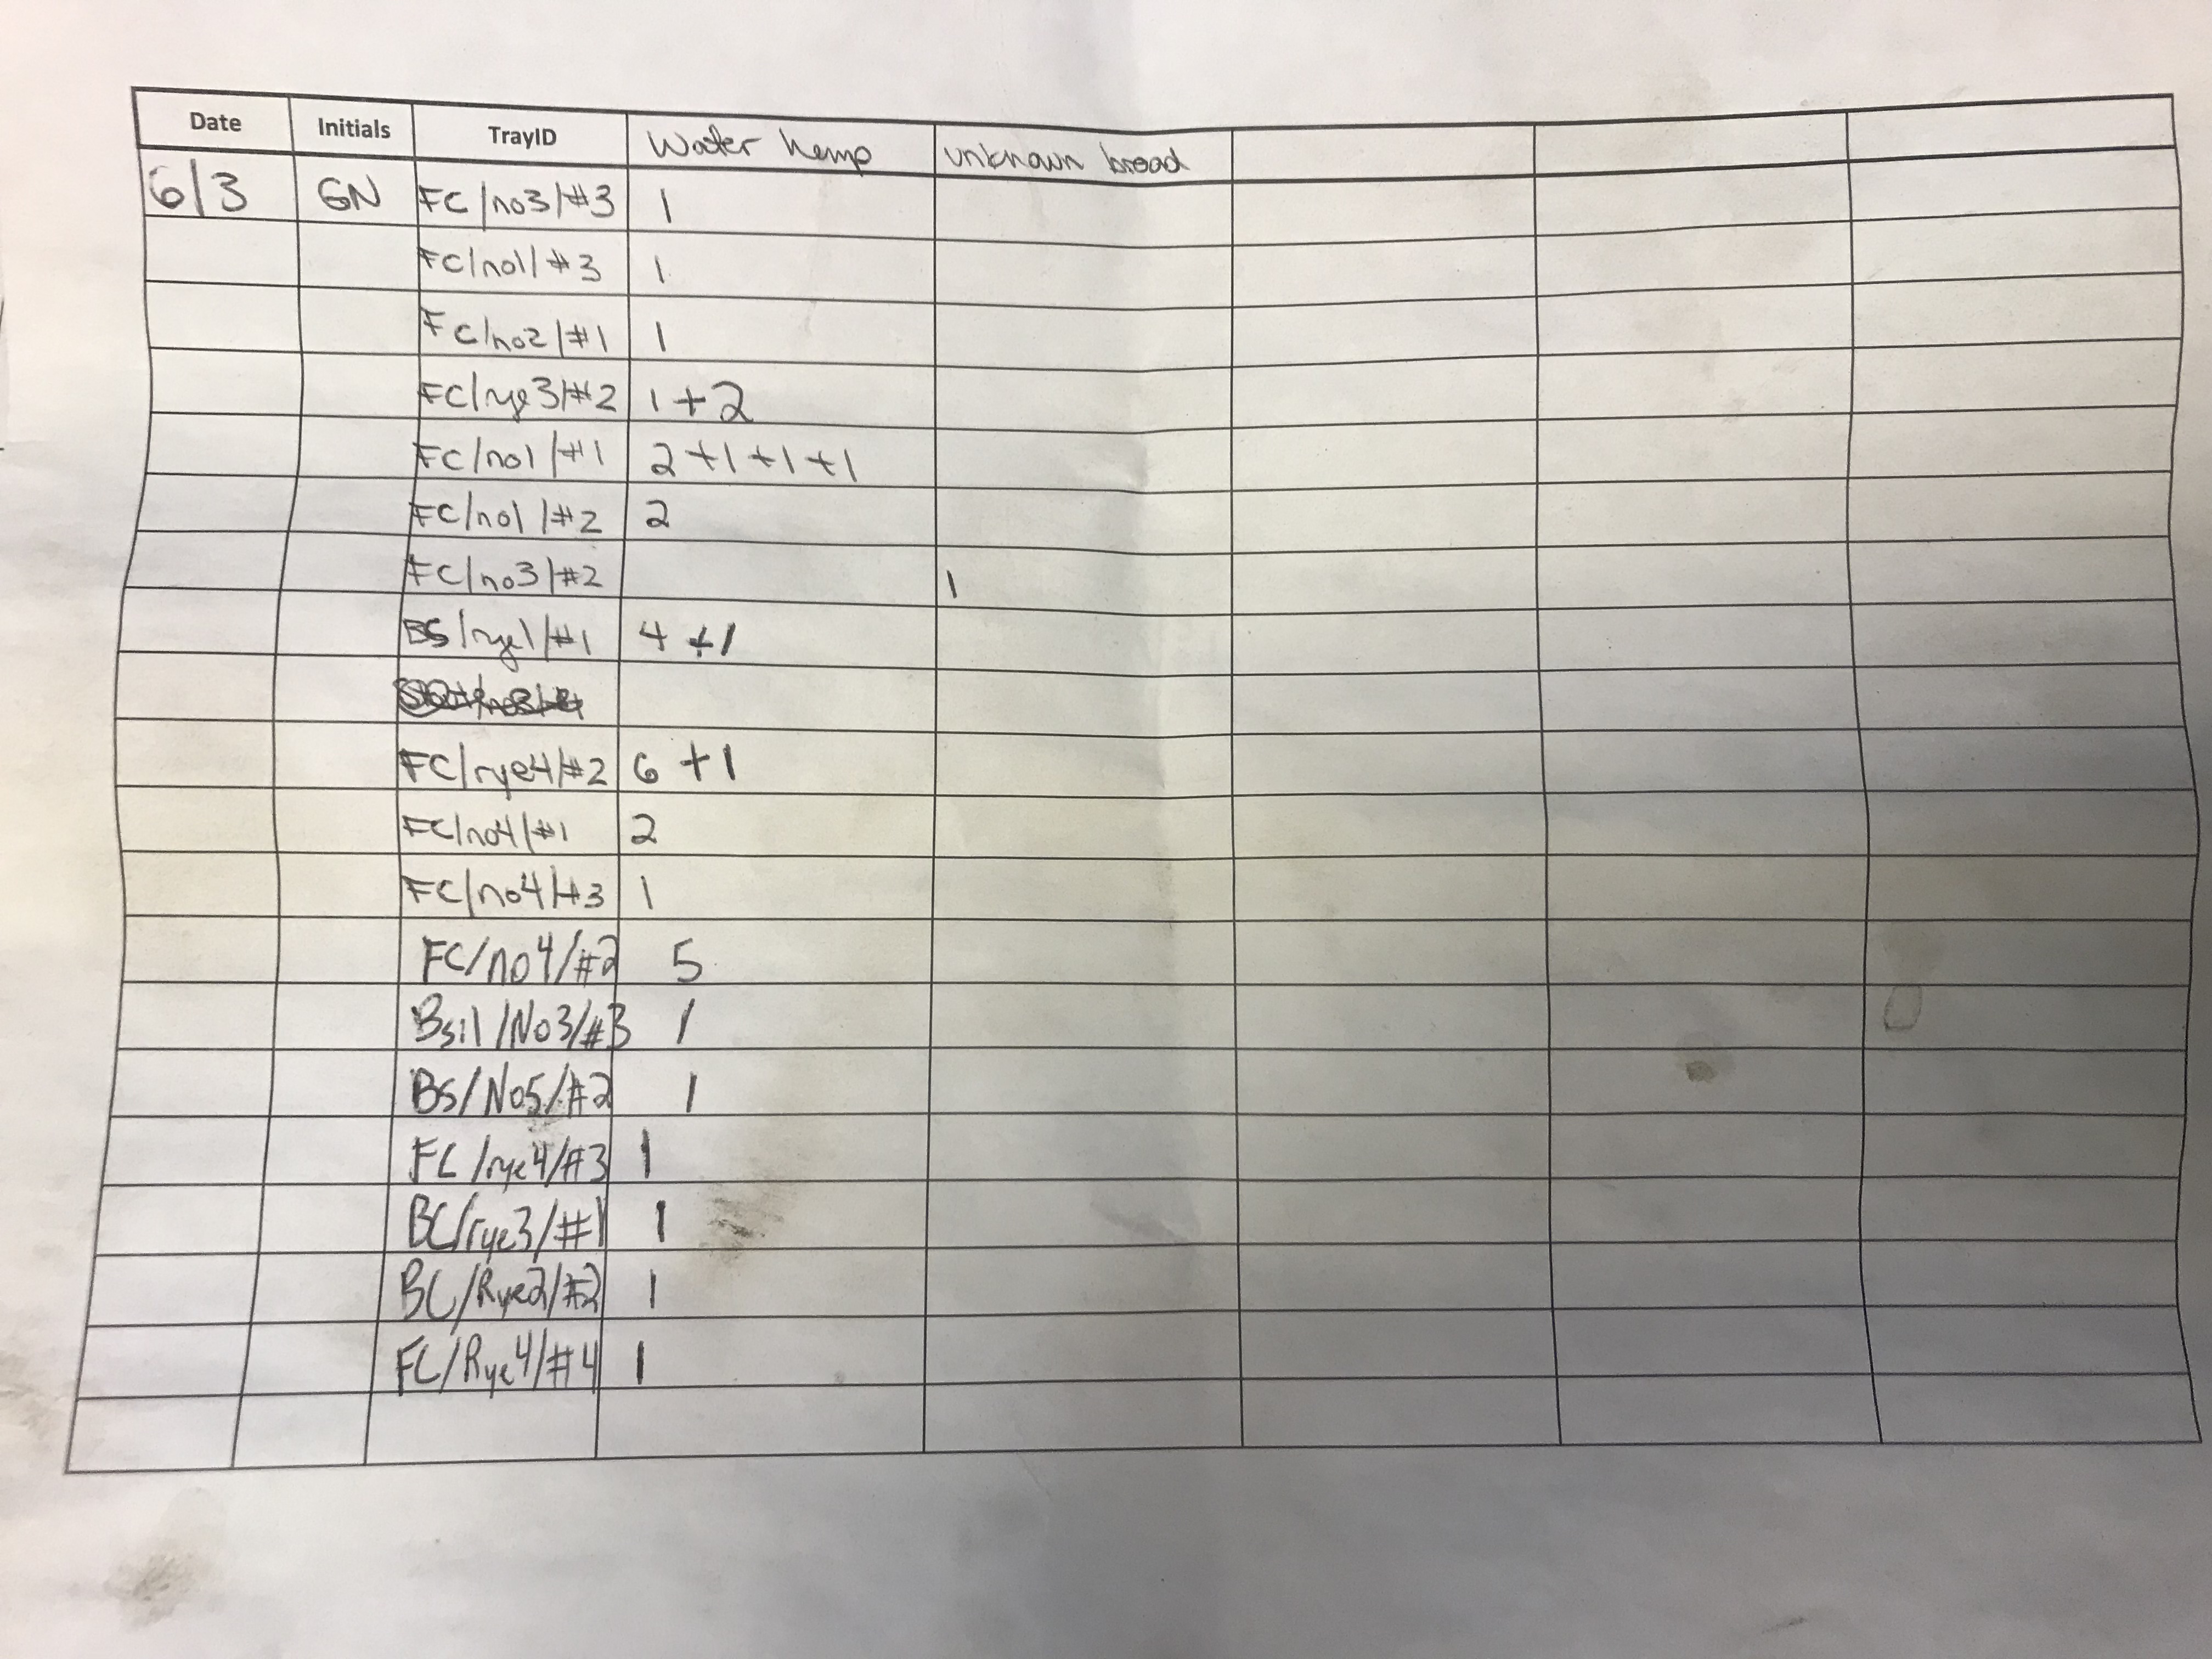 Date Initials TrayID Water hemp unknown broad
6/3 GN FC/no3/#3 1
FC/no1/#3 1
FC/no2/#1 1
FC/rye3/#2 1+2
FC/no1/#1 2+1+1+1
FC/no1/#2 2
FC/no3/#2 1
BS/rye1/#1 4+1
FC/rye4/#2 6+1
FC/no4/#1 2
FC/no4/#3 1
FC/no4/#2 5
Bsil/No3/#3 1
BS/No5/#2 1
FC/rye4/#3 1
BC/rye3/#1 1
BC/Rye2/#2 1
FC/Rye4/#4 1